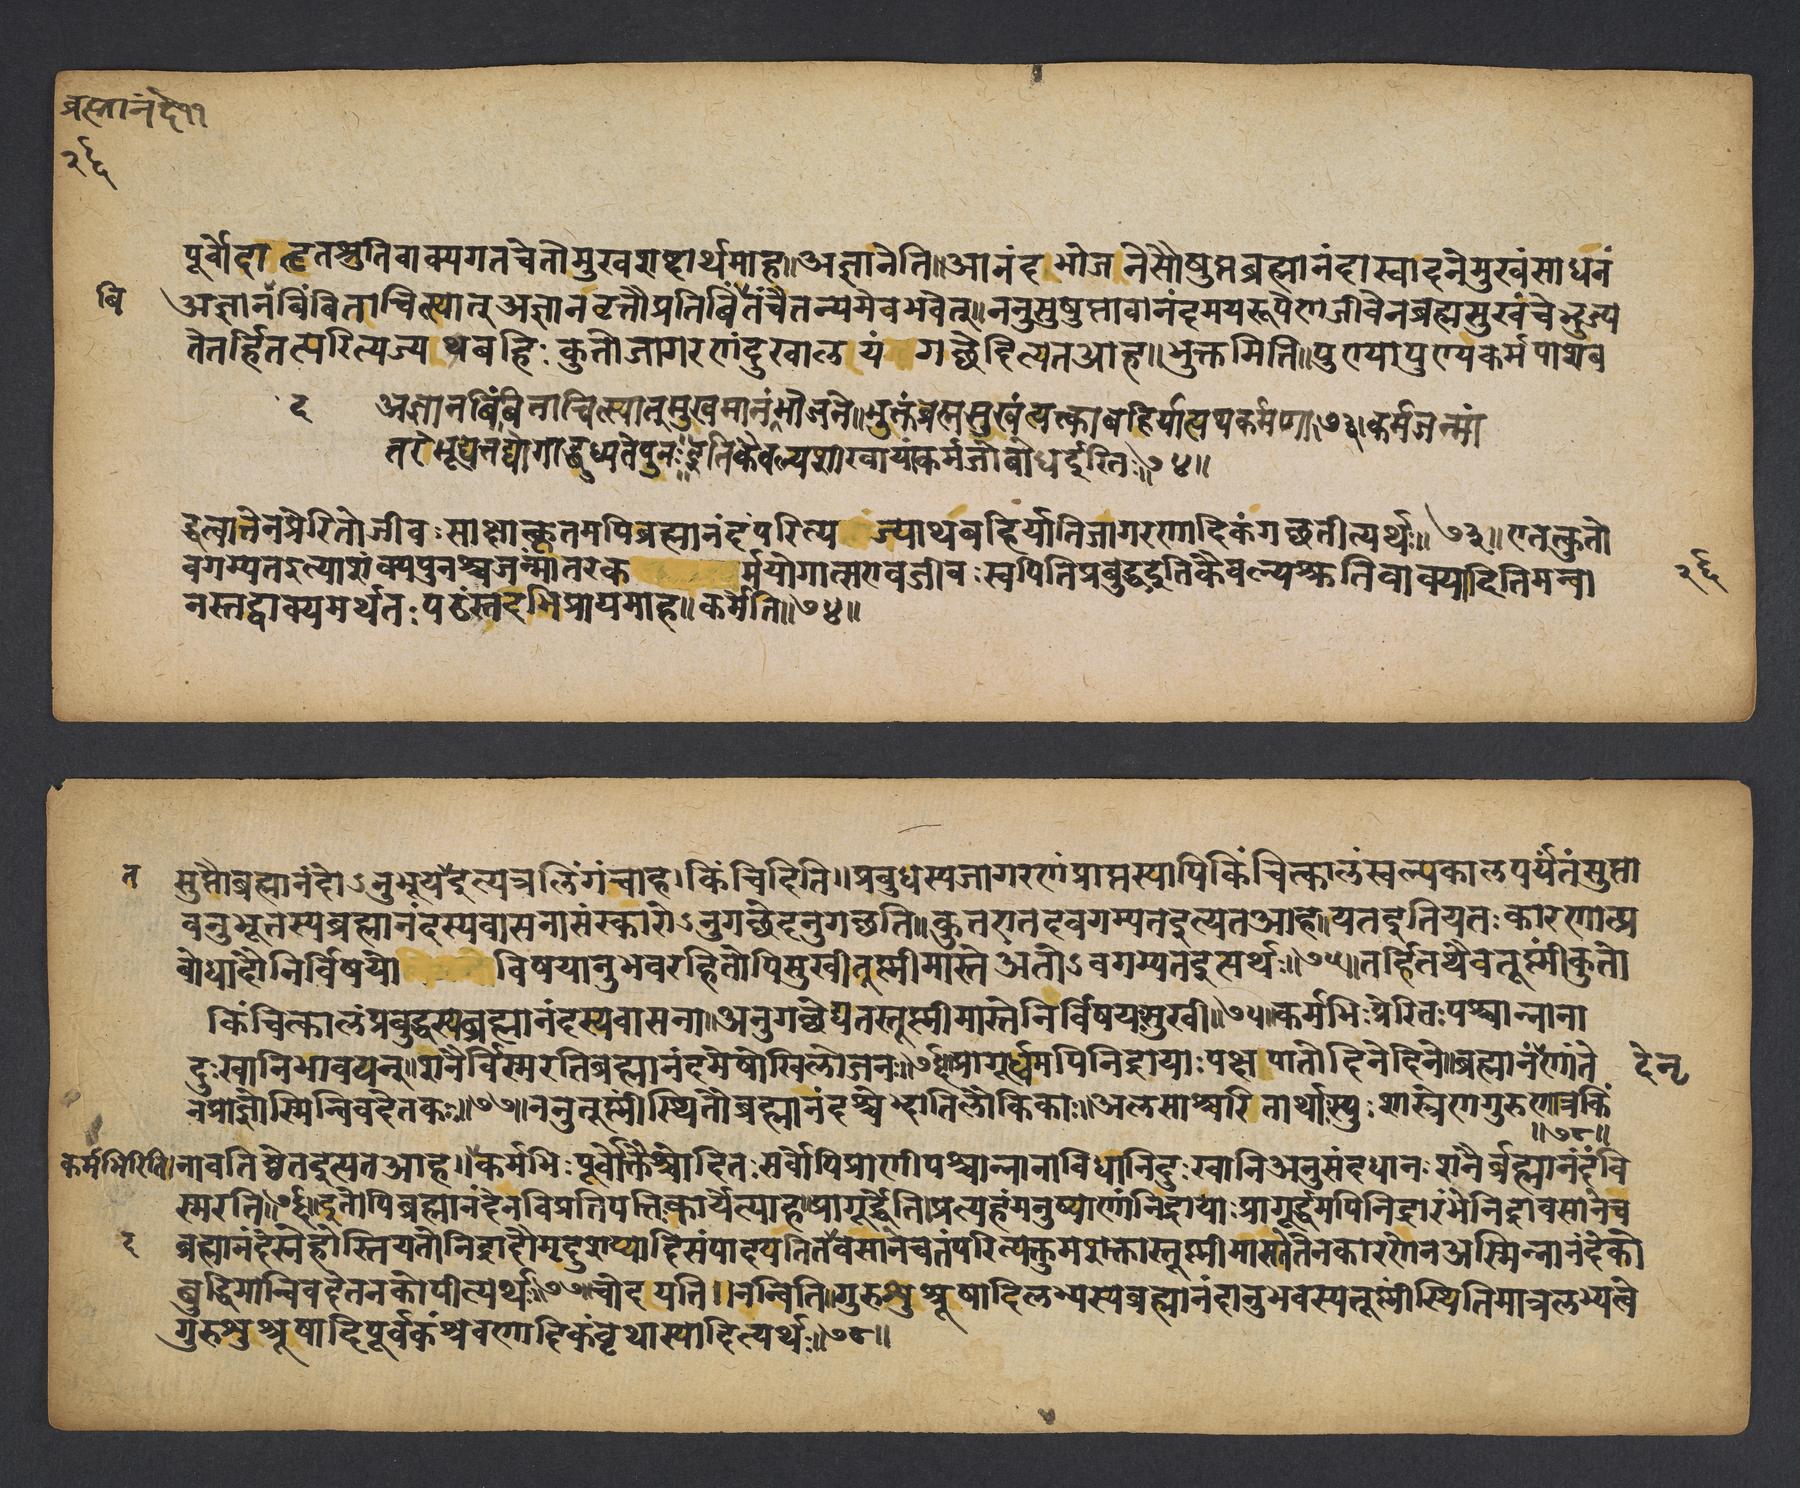 ब्रह्मानंदे ११
२६
पूर्वोदाहृतश्रुतिवाक्यगतचेतोमुखशब्दार्थमाह॥अज्ञानेति॥आनंदभोजनेसौषुप्तब्रह्मानंदास्वादनेमुखंसाधनं
बि
अज्ञानबिंबिताचित्स्यात् अज्ञानवृत्तौप्रतिबिंतंचैतन्यमेवभवेत्॥ननुसुषुप्तावानंदमयरूपेणजीवेनब्रह्मसुखंचेद्भुज्य
तेतर्हितत्परित्यज्याथबहिःकुतोजागरणंदुखालयंगच्छेदित्यतआह॥भुक्तमिति॥पुण्यापुण्यकर्मपाशब
द
अज्ञानबिंबिताचित्स्यान्मुखमानंभोजने॥भुक्तंब्रह्मसुखंत्यत्काबहिर्यात्यथकर्मणा॥७३॥कर्मजन्मां
तरेभूद्यत्तद्योगाद्बुध्यतेपुनः॥इतिकैवल्यशाखायांकर्मजोबोधईरितः॥७४॥
द्धत्वात्तेनप्रेरितोजीवःसाक्षात्कृतमपिब्रह्मानंदंपरित्यज्याथबहिर्यातिजागरणादिकंगच्छतीत्यर्थः॥७३॥एतत्कुतो
वगम्यतइत्याशंक्यपुनश्चजन्मांतरकर्मयोगात्सएवजीवःस्वपितिप्रबुद्धइतिकैवल्यश्रुतिवाक्यादितिमन्वा
२६
नस्तद्वाक्यमर्थतःपठंस्तदभिप्रायमाह॥कर्मेति॥७४॥
त
सुप्तौब्रह्मानंदोऽनुभूयइत्यत्रलिंगंचाह।किंचिदिति॥प्रबुधस्यजागरणंप्राप्तस्यापिकिंचित्कालंस्वल्पकालपर्यंतंसुप्ता
वनुभूतस्यब्रह्मानंदस्यवासनासंस्कारोऽनुगच्छेदनुगच्छति॥कुतएतदवगम्यतइत्यतआह॥यतइतियतःकारणात्प्र
बोधादौनिर्विषयोविषयानुभवरहितोपिसुखीतूष्णीमास्तेअतोऽवगम्यतइत्यर्थः॥७५॥तर्हितथैवतूष्णींकुतो
किंचित्कालंप्रबुद्धस्यब्रह्मानंदस्यवासना॥अनुगच्छेद्यतस्तूष्णीमास्तेनिर्विषयःसुखी॥७५॥कर्मभिःप्रेरितःपश्चान्नाना
दुःखानिभावयन्॥शनैर्विस्मरतिब्रह्मानंदमेषोखिलोजनः॥७६॥प्रागूर्ध्वमपिनिद्रायाःपक्षपातोदिनेदिने॥ब्रह्मानंणांते
देनृ
नप्राज्ञोस्मिन्विवदेतकः॥७७॥ननुतूष्णींस्थितौब्रह्मानंदश्चेद्भातिलौकिकाः॥अलसाश्चरितार्थाःस्युःशास्त्रेणगुरुणात्रकिं
॥७८॥
कर्मभिरिति।
नावतिष्ठेतइत्यतआह॥कर्मभिःपूर्वोक्तैश्चोदितःसर्वोपिप्राणीपश्चान्नानाविधानिदुःखानिअनुसंदधानःशनैर्ब्रह्मानंदंवि
स्मरति॥७६॥इतोपिब्रह्मानंदेनविप्रतिपत्तिःकार्येत्याह॥प्रागूर्द्ध्वेति।प्रत्यहंमनुष्याणांनिद्रायाःप्रागूर्द्ध्वमपिनिद्रारंभेनिद्रावसानेच
द
ब्रह्मानंदेस्नेहोस्तियतोनिद्रादौमृदुशय्यादिसंपादयतितेवसानेचतंपरित्यक्तुमशक्तास्तूष्णीमास्तेतेनकारणेनअस्मिन्नानंदेको
बुद्धिमान्विवदेतनकोपीत्यर्थः॥७७॥चोदयति॥नन्विति॥गुरुशुश्रूषादिलभ्यस्यब्रह्मानंदानुभवस्यतूष्णींस्थितिमात्रलभ्यत्वे
गुरुशुश्रूषादिपूर्वकंश्रवणादिकंवृथास्यादित्यर्थः॥७८॥